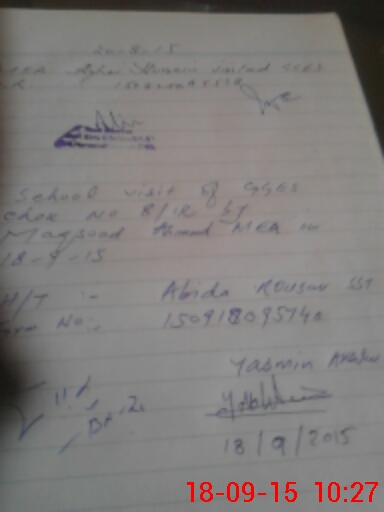 20-8-15
MEA Azhar Hussain visited GGES
School visit of GGES
Chak No 8/1R by
Maqsood Ahmad MEA in
18-9-15
H/T :- Abida Kousar SST
Form No:- 150918095740
Yasmin Akhtar
18/9/2015
18-09-15 10:27